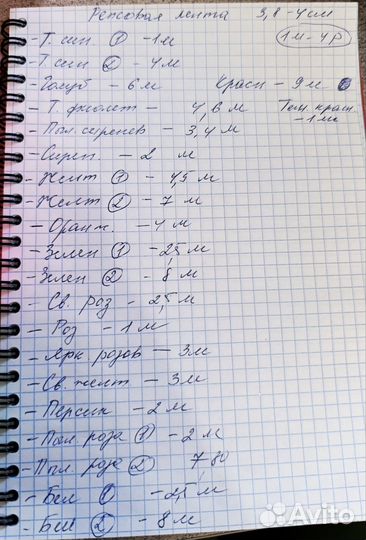 Репсовая лента 3,8-4см
1м-4р
- Т. син ① -1м
- Т. син ② -4м
- Голуб - 6м Красн - 9м
- Т. фиолет - 4,6м Тем. красн. -1м
- Пыл сиренев - 3,4м
- Сирен. - 2 м
- Желт ① - 4,5м
- Желт ② - 7м
- Оранж. - 4м
- Зелен ① - 2,5м
- Зелен ② - 8м
- Св. роз - 2,5м
- Роз - 1м
- Ярк розов - 3м
- Св. желт - 3м
- Персик - 2м
- Пыл. роза ① - 2м
- Пыл. роза ② 7,80
- Бел ① - 2,5м
- Бел ② - 8м
Avito